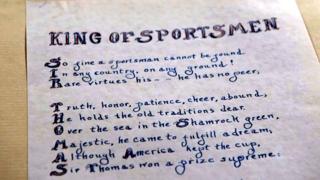 KING OF SPORTSMEN
So fine a sportsman cannot be found
In any country, on any ground!
Rare virtues his -- he has no peer,
Truth, honor, patience, cheer, abound,
He holds the old traditions dear.
Over the sea in the Shamrock green,
Majestic, he came to fulfill a dream,
Although America kept the cup,
Sir Thomas won a prize supreme.